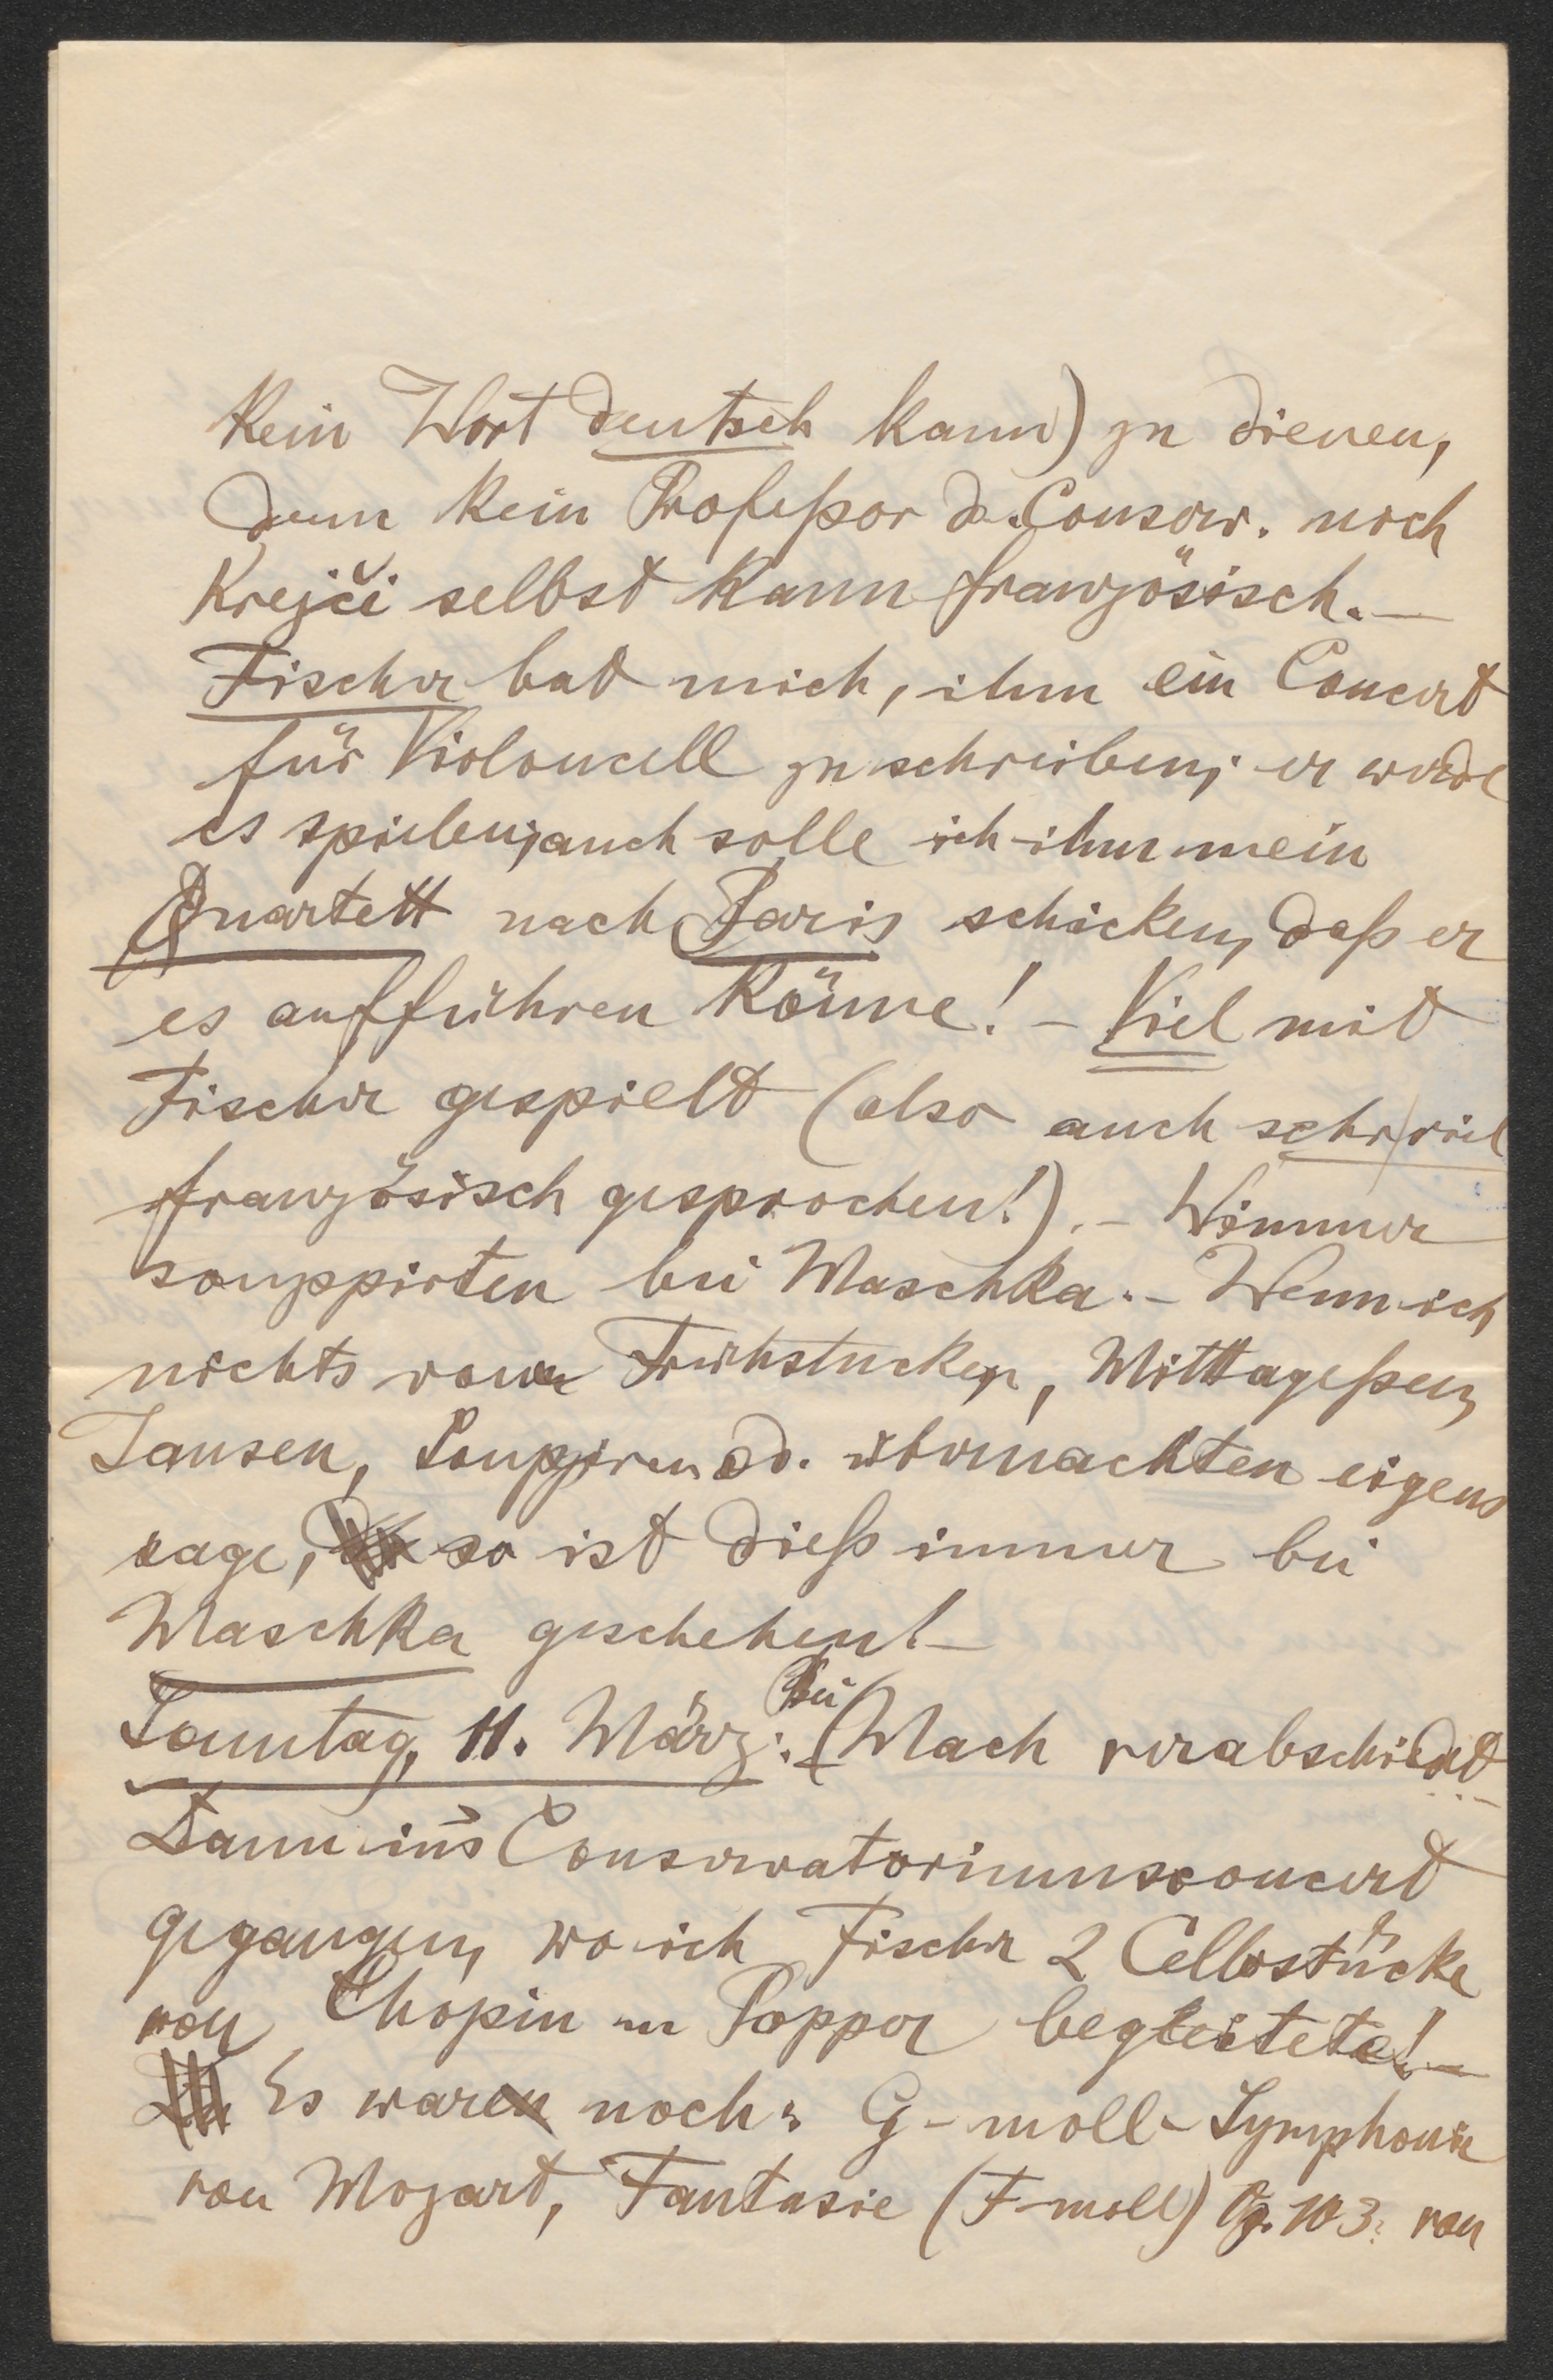 kein Wort deutsch kann) zu dienen,
denn kein Profeßor d. Conserv. noch
Krejčí selbst kann französisch. —
Fischer bat mich, ihm ein Concert
für Violoncell zu schreiben; er werde
es spielen; auch solle ich ihm mein
Quartett nach Paris schicken, daß er
es aufführen könne! – Viel mit
Fischer gespielt (also auch sehr viel
französisch gesprochen!). – Wimmer
souppirten bei Maschka. – Wenn ich
nichts vom Frühstücken, Mittageßen,
Jausen, Souppiren od. übernachten eigens
sage, so ist dieß immer bei
Maschka geschehen! –
Sonntag, 11. März: Bei Mach verabschiedet
Dann in's Conservatoriumsconcert
gegangen, wo ich Fischer 2 Cellostücke
von Chopin u Popper begleitete! –
Es war noch: G-moll-Symphonie
von Mozart, Fantasie (F-moll) Op. 103. von